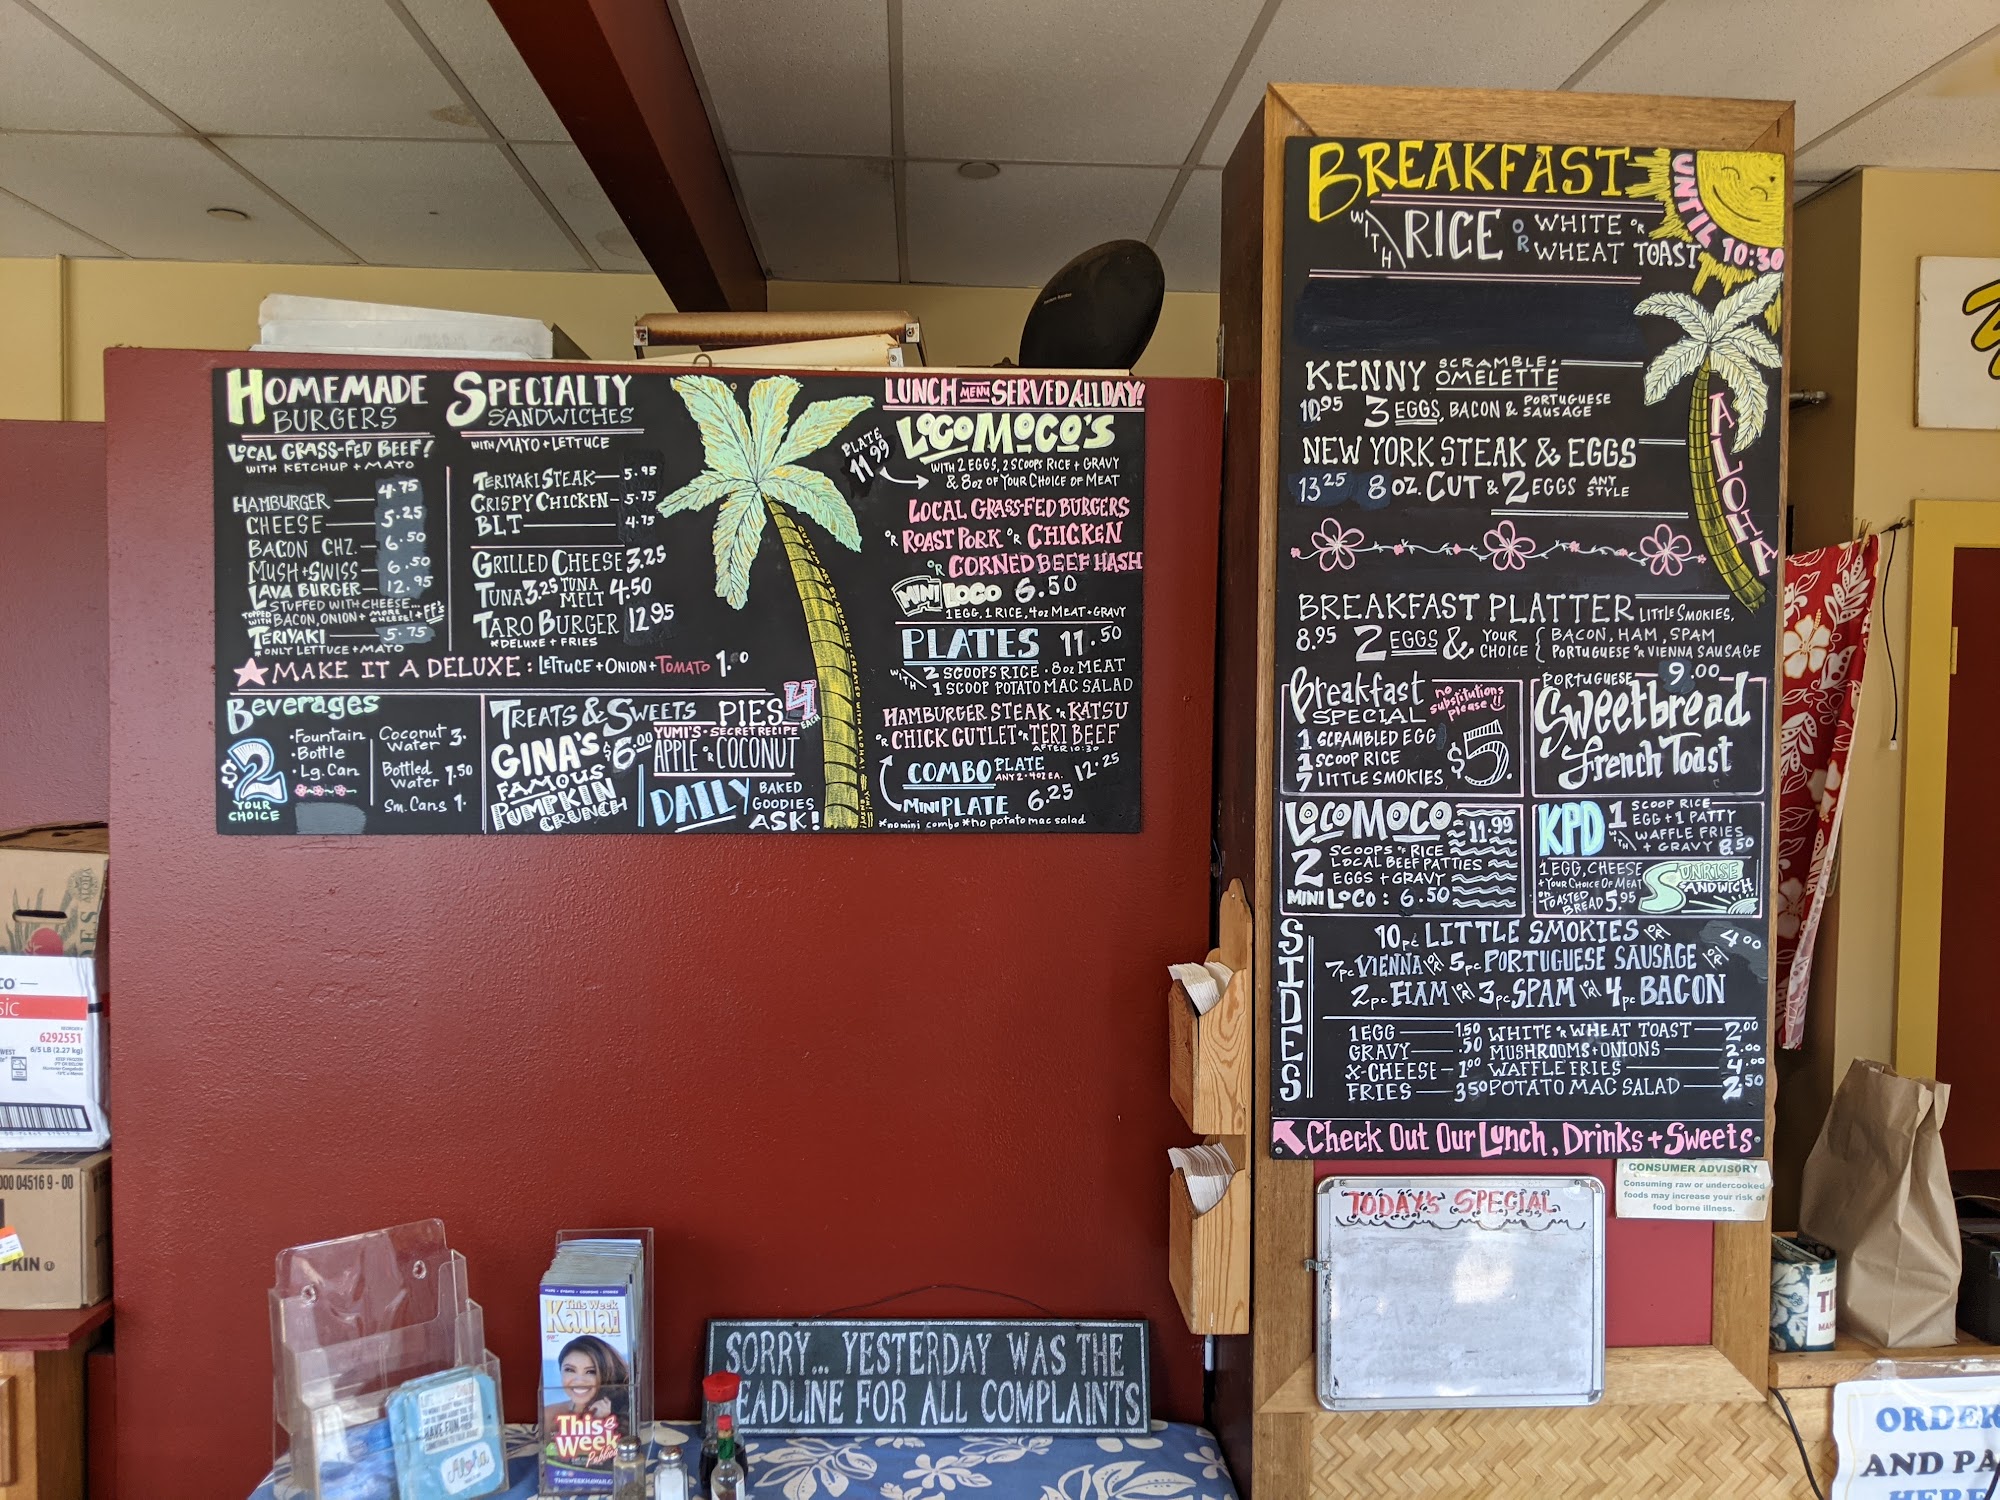 HOMEMADE
BURGERS
LOCAL GRASS-FED BEEF!
WITH KETCHUP + MAYO
HAMBURGER 4.75
CHEESE 5.25
BACON CHZ. 6.50
MUSH + SWISS 6.50
LAVA BURGER 12.95
STUFFED WITH CHEESE...
TOPPED WITH BACON, ONION + MORE CHEESE! + FF's
TERIYAKI 5.75
* ONLY LETTUCE + MAYO
SPECIALTY
SANDWICHES
WITH MAYO + LETTUCE
TERIYAKI STEAK 5.95
CRISPY CHICKEN 5.75
BLT 4.75
GRILLED CHEESE 3.25
TUNA 3.25 TUNA MELT 4.50
TARO BURGER 12.95
*DELUXE + FRIES
MAKE IT A DELUXE: LETTUCE + ONION + TOMATO 1.00
BEVERAGES
$2
YOUR
CHOICE
• Fountain
• Bottle
• Lg. Can
Coconut
Water 3.
Bottled
Water 1.50
Sm. Cans 1.
TREATS & SWEETS
GINA'S $6.00
FAMOUS
PUMPKIN
CRUNCH
PIES 4 EACH
YUMI'S • SECRET RECIPE
APPLE OR COCONUT
DAILY BAKED
GOODIES
ASK!
LUNCH MENU SERVED ALL DAY!
LOCO MOCO'S
PLATE
11.99
WITH 2 EGGS, 2 SCOOPS RICE + GRAVY
& 8oz OF YOUR CHOICE OF MEAT
LOCAL GRASS-FED BURGERS
OR ROAST PORK OR CHICKEN
OR CORNED BEEF HASH
MINI LOCO 6.50
1 EGG, 1 RICE, 4oz MEAT + GRAVY
PLATES 11.50
WITH 2 SCOOPS RICE . 8oz MEAT
1 SCOOP POTATO MAC SALAD
HAMBURGER STEAK OR KATSU
OR CHICK CUTLET OR TERI BEEF
AFTER 10:30
COMBO PLATE 12.25
ANY 2 • 4oz EA.
MINI PLATE 6.25
*no mini combo *no potato mac salad
BREAKFAST
UNTIL 10:30
WITH RICE OR WHITE OR
WHEAT TOAST
ALOHA
KENNY SCRAMBLE •
OMELETTE
10.95 3 EGGS, BACON & PORTUGUESE
SAUSAGE
NEW YORK STEAK & EGGS
13.25 8 OZ. CUT & 2 EGGS ANY
STYLE
BREAKFAST PLATTER LITTLE SMOKIES,
8.95 2 EGGS & YOUR CHOICE { BACON, HAM, SPAM
PORTUGUESE OR VIENNA SAUSAGE
Breakfast
SPECIAL
no substitutions please!!
1 SCRAMBLED EGG
1 SCOOP RICE
7 LITTLE SMOKIES
$5.
PORTUGUESE 9.00
Sweetbread
French Toast
LOCO MOCO 11.99
2 SCOOPS OF RICE
LOCAL BEEF PATTIES
EGGS + GRAVY
MINI LOCO: 6.50
KPD 1 SCOOP RICE
EGG + 1 PATTY
WITH WAFFLE FRIES
+ GRAVY 8.50
1 EGG, CHEESE
+ YOUR CHOICE OF MEAT
ON TOASTED
BREAD 5.95
SUNRISE
SANDWICH
SIDES
10pc LITTLE SMOKIES OR 4.00
7pc VIENNA OR 5pc PORTUGUESE SAUSAGE OR
2pc HAM OR 3pc SPAM OR 4pc BACON
1 EGG 1.50 WHITE OR WHEAT TOAST 2.00
GRAVY .50 MUSHROOMS + ONIONS 2.00
X-CHEESE 1.00 WAFFLE FRIES 4.00
FRIES 3.50 POTATO MAC SALAD 2.50
Check Out Our Lunch, Drinks + Sweets
CONSUMER ADVISORY
Consuming raw or undercooked
foods may increase your risk of
food borne illness.
TODAY'S SPECIAL
SORRY... YESTERDAY WAS THE
EADLINE FOR ALL COMPLAINTS
This Week
Kauai
This
Week
Aloha
6292551
6/5 LB (2.27 kg)
000 04516 9 - 00
PKIN
ORDER
AND PA
HERE